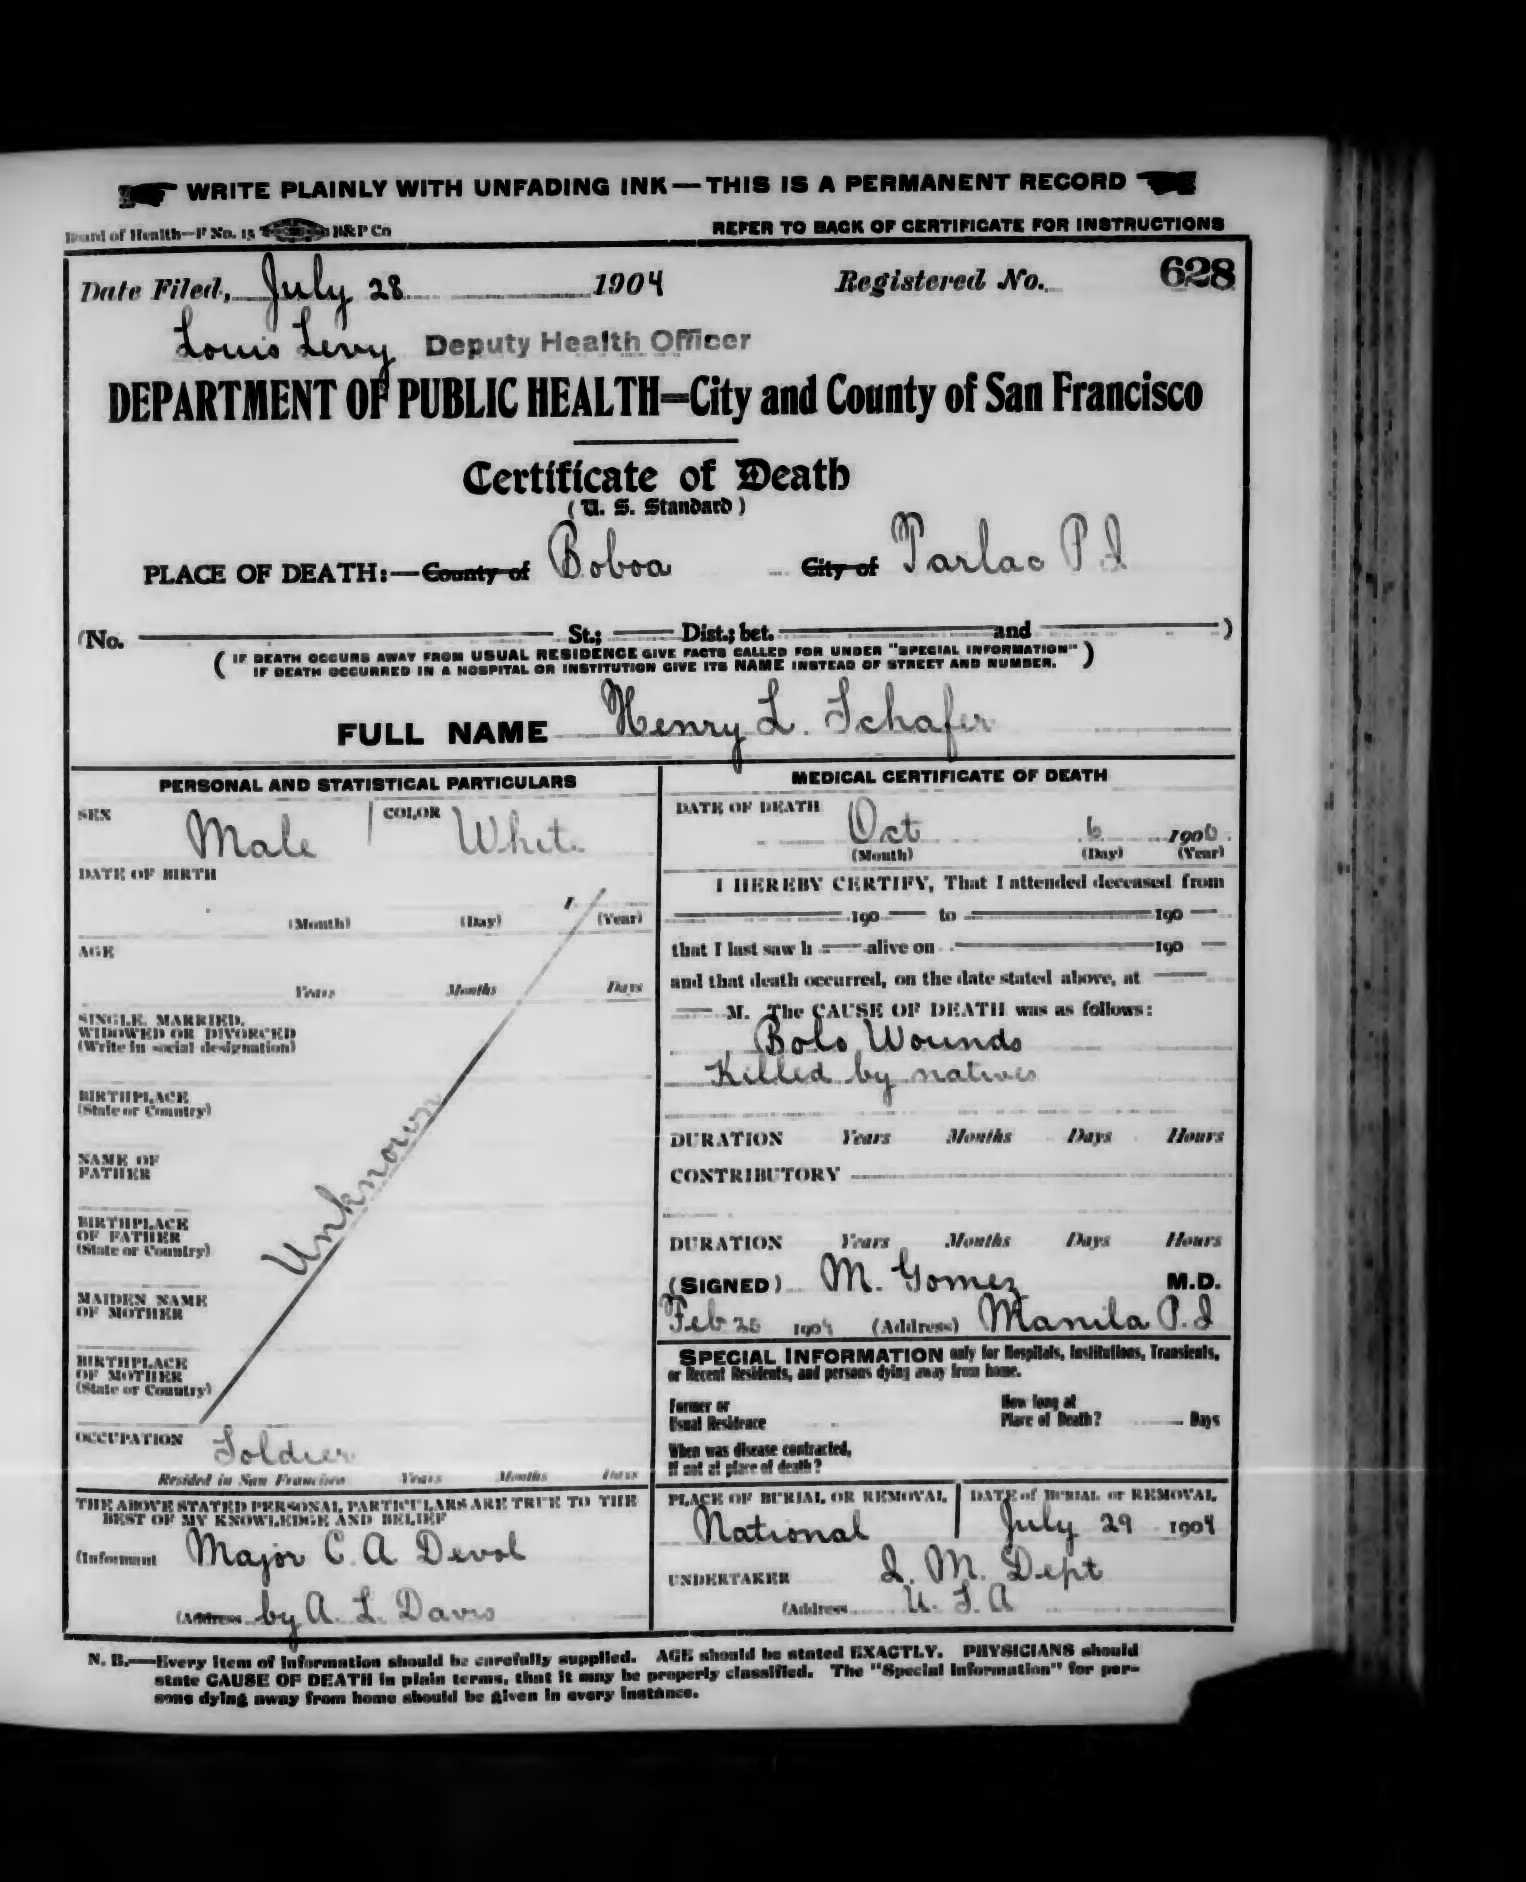 WRITE PLAINLY WITH UNFADING INK—THIS IS A PERMANENT RECORD
Board of Health—F No. 15 H&P Co REFER TO BACK OF CERTIFICATE FOR INSTRUCTIONS
Date Filed, July 28 1904 Registered No. 628
Louis Levy Deputy Health Officer
DEPARTMENT OF PUBLIC HEALTH—City and County of San Francisco
Certificate of Death
(U. S. Standard)
PLACE OF DEATH:—County of Boboa City of Tarlac P I
(No. St.; Dist.; bet. and )
(IF DEATH OCCURS AWAY FROM USUAL RESIDENCE GIVE FACTS CALLED FOR UNDER "SPECIAL INFORMATION"
IF DEATH OCCURRED IN A HOSPITAL OR INSTITUTION GIVE ITS NAME INSTEAD OF STREET AND NUMBER.)
FULL NAME Henry L. Schafer
PERSONAL AND STATISTICAL PARTICULARS
SEX Male COLOR White
DATE OF BIRTH
(Month) (Day) 1 (Year)
AGE
Years Months Days
SINGLE, MARRIED,
WIDOWED OR DIVORCED
(Write in social designation)
BIRTHPLACE
(State or Country)
NAME OF
FATHER
Unknown
BIRTHPLACE
OF FATHER
(State or Country)
MAIDEN NAME
OF MOTHER
BIRTHPLACE
OF MOTHER
(State or Country)
OCCUPATION Soldier
Resided in San Francisco Years Months Days
THE ABOVE STATED PERSONAL PARTICULARS ARE TRUE TO THE
BEST OF MY KNOWLEDGE AND BELIEF
(Informant Major C. A Devol
(Address by A. L. Davis
MEDICAL CERTIFICATE OF DEATH
DATE OF DEATH
Oct 6 1900
(Month) (Day) (Year)
I HEREBY CERTIFY, That I attended deceased from
190 to 190
that I last saw h alive on 190
and that death occurred, on the date stated above, at
M. The CAUSE OF DEATH was as follows:
Bolo Wounds
Killed by natives
DURATION Years Months Days Hours
CONTRIBUTORY
DURATION Years Months Days Hours
(SIGNED) M. Gomez M.D.
Feb 1904 (Address) Manila P. I
SPECIAL INFORMATION only for Hospitals, Institutions, Transients,
or Recent Residents, and persons dying away from home.
Former or
Usual Residence
How long at
Place of Death? Days
When was disease contracted,
If not at place of death?
PLACE OF BURIAL OR REMOVAL DATE of BURIAL or REMOVAL
National July 29 1904
UNDERTAKER Q. M. Dept
(Address U. S. A
N. B.—Every item of information should be carefully supplied. AGE should be stated EXACTLY. PHYSICIANS should
state CAUSE OF DEATH in plain terms, that it may be properly classified. The "Special Information" for per-
sons dying away from home should be given in every instance.